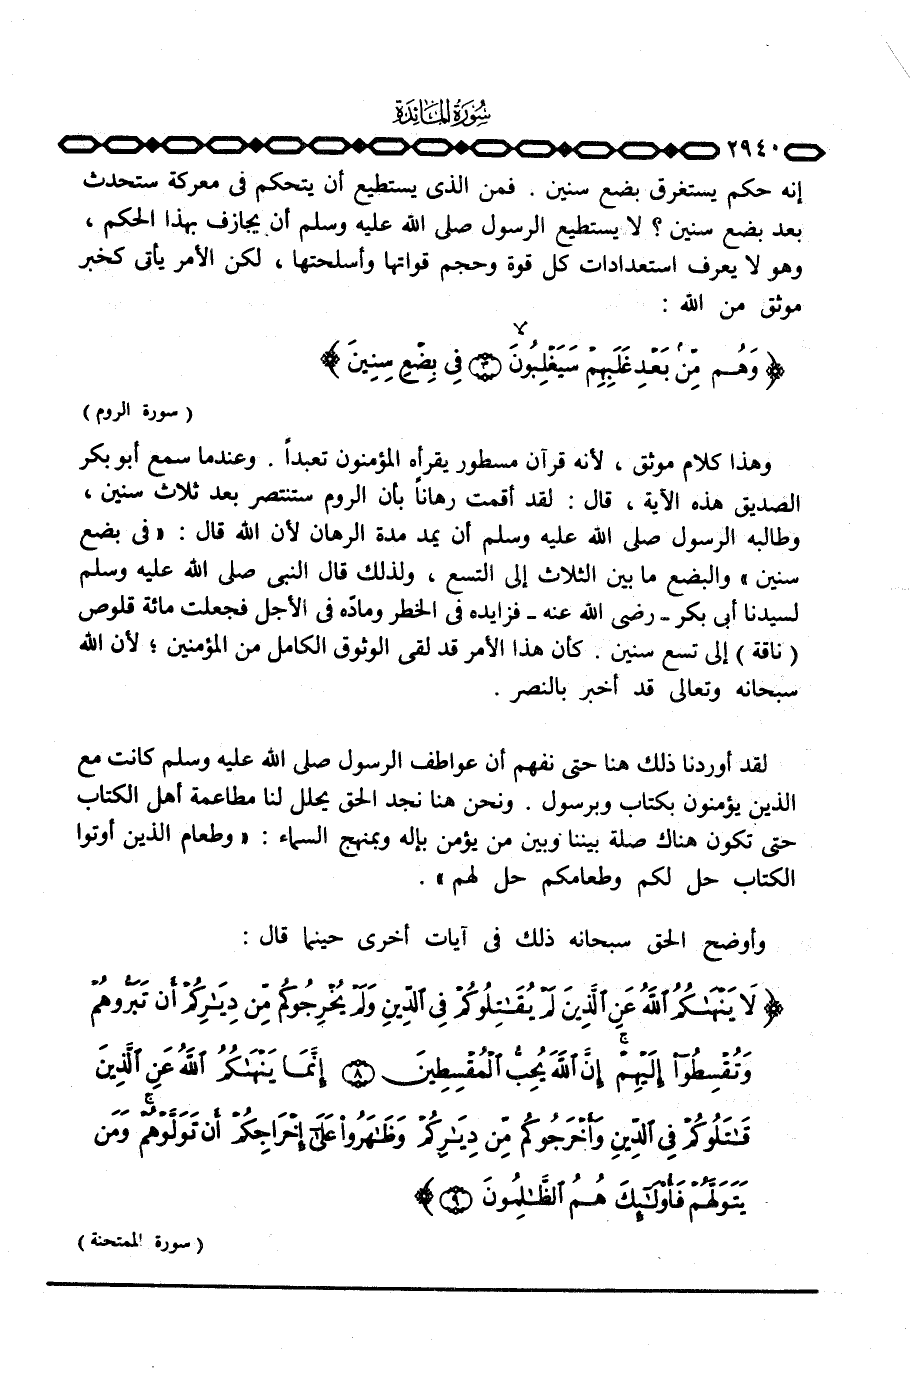 سُورَةُ المَائِدَة
٢٩٤٠
إنه حكم يستغرق بضع سنين . فمن الذى يستطيع أن يتحكم فى معركة ستحدث
بعد بضع سنين ؟ لا يستطيع الرسول صلى الله عليه وسلم أن يجازف بهذا الحكم ،
وهو لا يعرف استعدادات كل قوة وحجم قواتها وأسلحتها ، لكن الأمر يأتى كخبر
موثق من الله :
﴿ وَهُم مِّنۢ بَعْدِ غَلَبِهِمْ سَيَغْلِبُونَ ۝٣ فِى بِضْعِ سِنِينَ ﴾
( سورة الروم )
وهذا كلام موثق ، لأنه قرآن مسطور يقرأه المؤمنون تعبداً . وعندما سمع أبو بكر
الصديق هذه الآية ، قال : لقد أقمت رهاناً بأن الروم ستنتصر بعد ثلاث سنين ،
وطالبه الرسول صلى الله عليه وسلم أن يمد مدة الرهان لأن الله قال : « فى بضع
سنين » والبضع ما بين الثلاث إلى التسع ، ولذلك قال النبى صلى الله عليه وسلم
لسيدنا أبى بكر ـ رضى الله عنه ـ فزايده فى الخطر ومادّه فى الأجل فجعلت مائة قلوص
( ناقة ) إلى تسع سنين . كأن هذا الأمر قد لقى الوثوق الكامل من المؤمنين ؛ لأن الله
سبحانه وتعالى قد أخبر بالنصر .
لقد أوردنا ذلك هنا حتى نفهم أن عواطف الرسول صلى الله عليه وسلم كانت مع
الذين يؤمنون بكتاب وبرسول . ونحن هنا نجد الحق يحلل لنا مطاعمة أهل الكتاب
حتى تكون هناك صلة بيننا وبين من يؤمن بإله وبمنهج السماء : « وطعام الذين أوتوا
الكتاب حل لكم وطعامكم حل لهم » .
وأوضح الحق سبحانه ذلك فى آيات أخرى حينما قال :
﴿ لَا يَنْهَىٰكُمُ ٱللَّهُ عَنِ ٱلَّذِينَ لَمْ يُقَٰتِلُوكُمْ فِى ٱلدِّينِ وَلَمْ يُخْرِجُوكُم مِّن دِيَٰرِكُمْ أَن تَبَرُّوهُمْ
وَتُقْسِطُوٓا۟ إِلَيْهِمْ ۚ إِنَّ ٱللَّهَ يُحِبُّ ٱلْمُقْسِطِينَ ۝٨ إِنَّمَا يَنْهَىٰكُمُ ٱللَّهُ عَنِ ٱلَّذِينَ
قَٰتَلُوكُمْ فِى ٱلدِّينِ وَأَخْرَجُوكُم مِّن دِيَٰرِكُمْ وَظَٰهَرُوا۟ عَلَىٰٓ إِخْرَاجِكُمْ أَن تَوَلَّوْهُمْ ۚ وَمَن
يَتَوَلَّهُمْ فَأُو۟لَٰٓئِكَ هُمُ ٱلظَّٰلِمُونَ ۝٩ ﴾
( سورة الممتحنة )